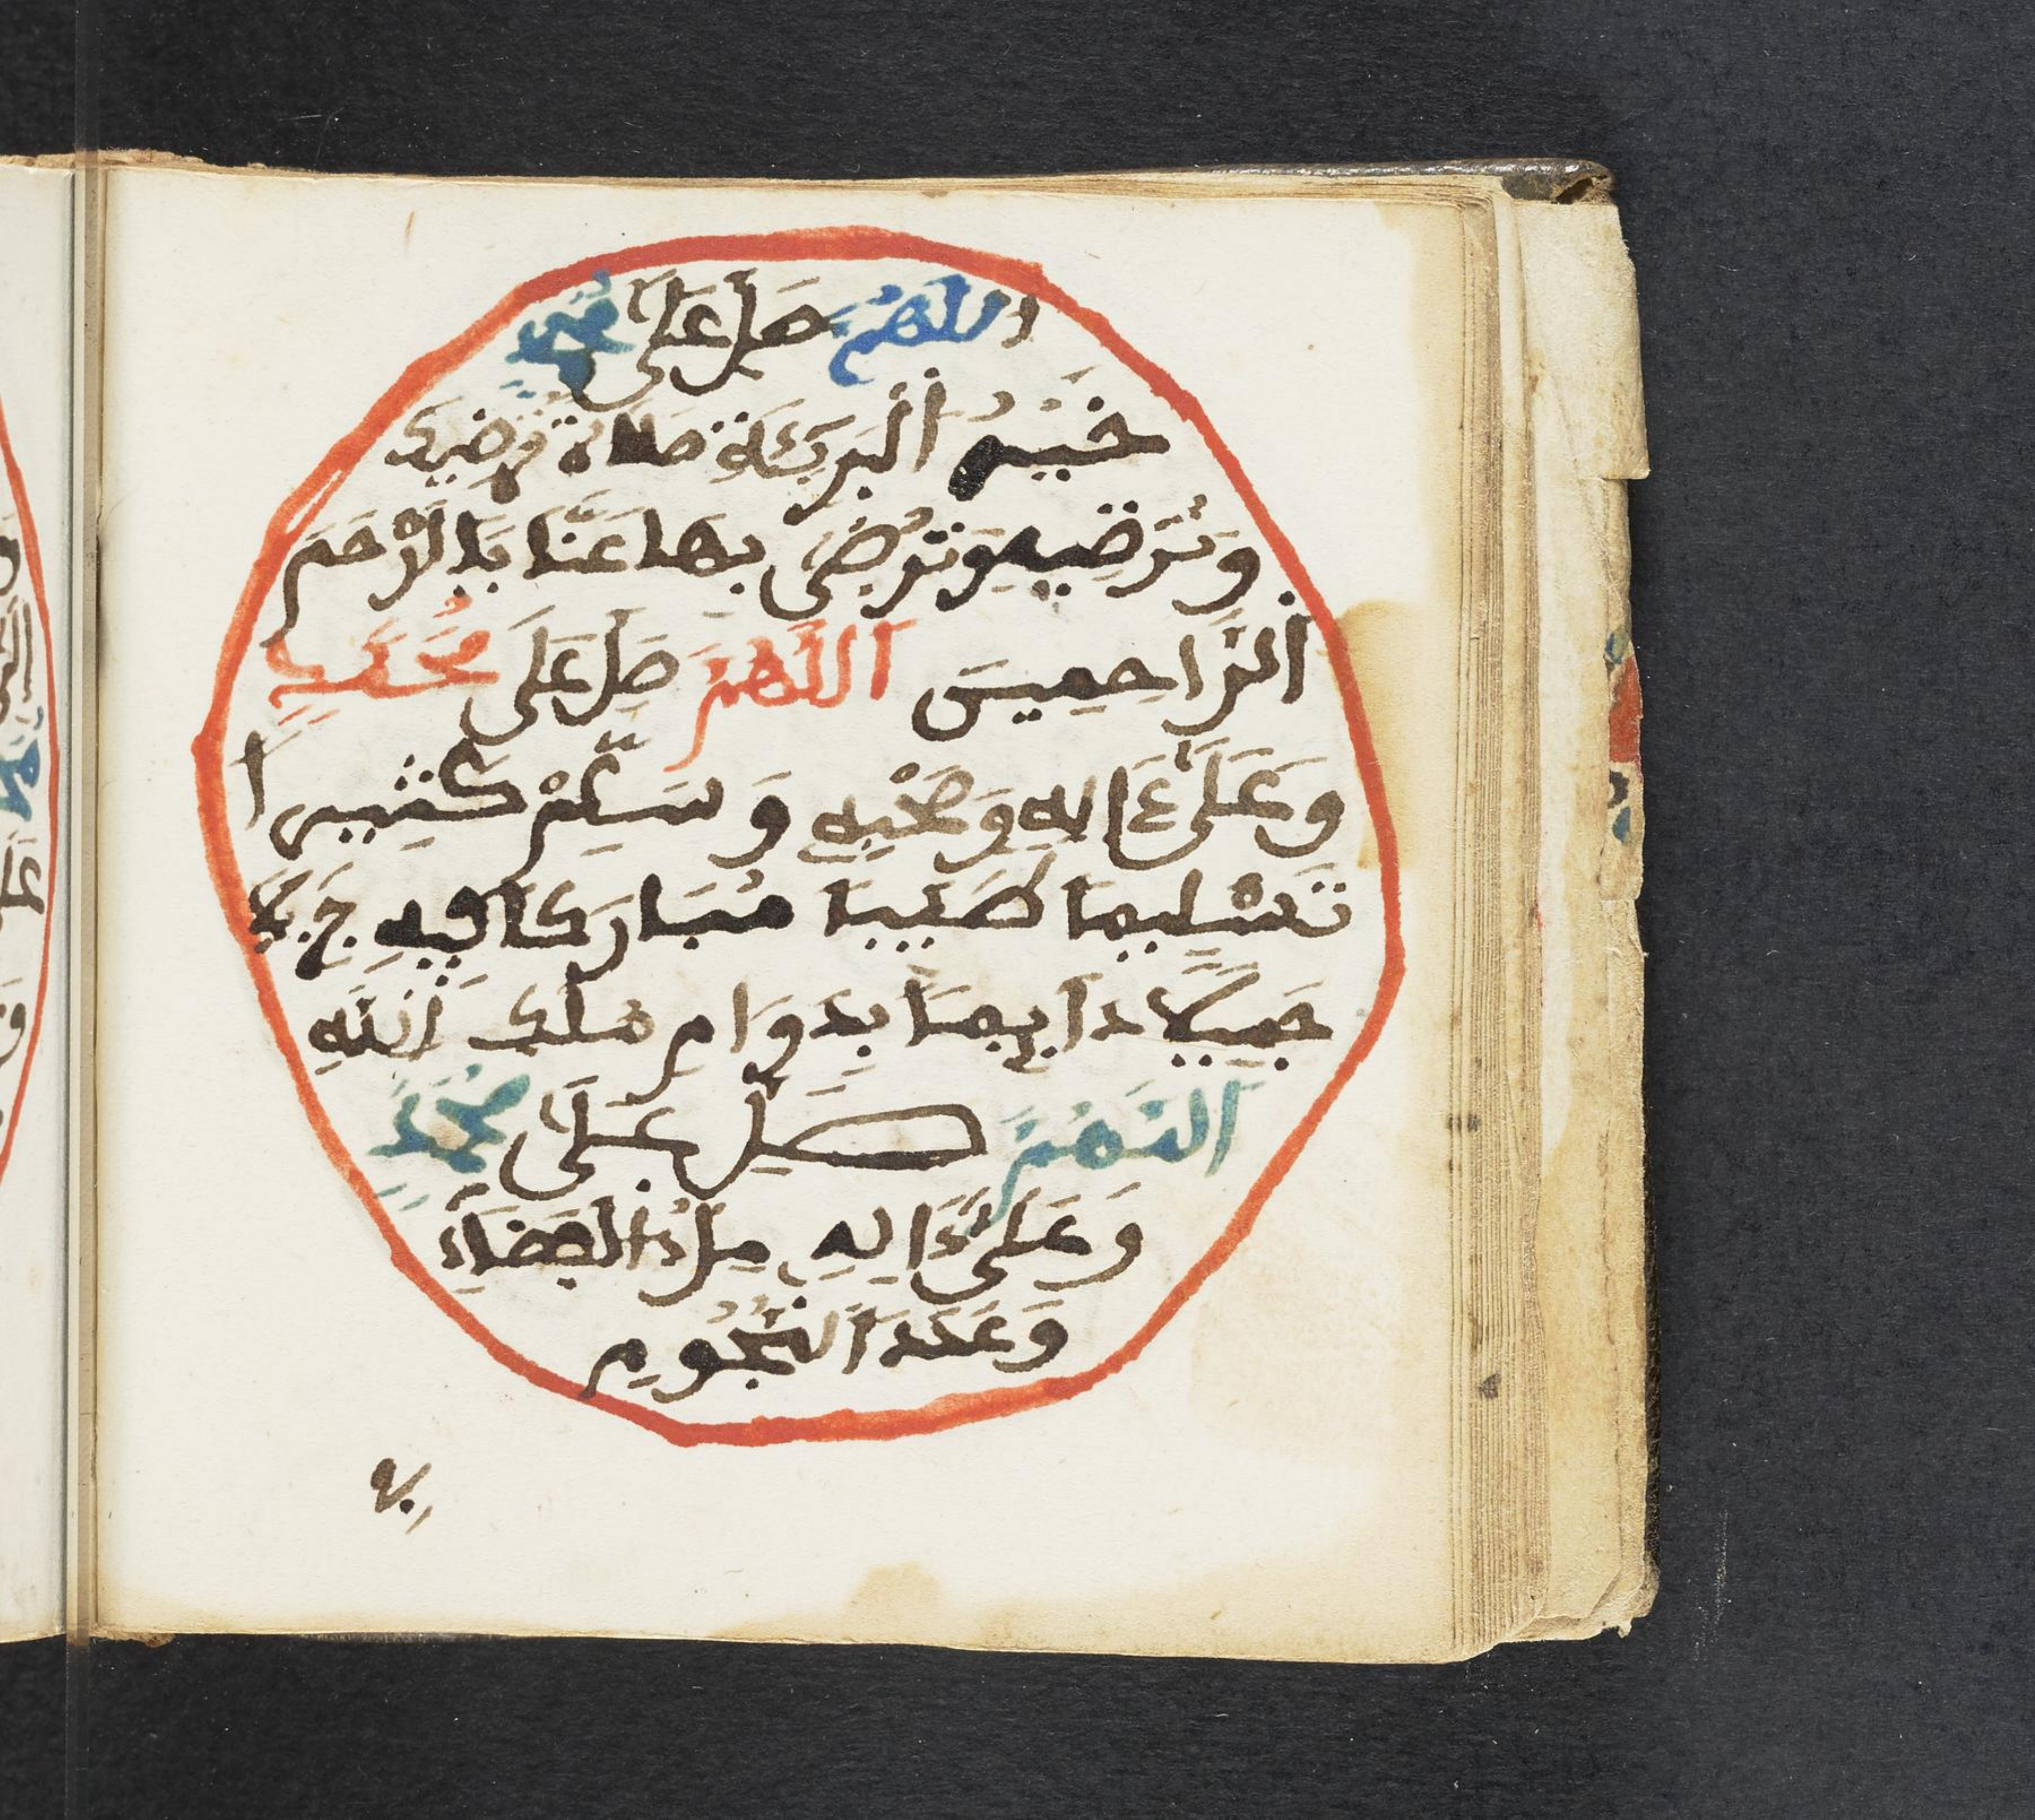 اللهم صل على محمد
خير البرية صلاة ترضيك
وترضيه وترضى بها عنا يا ارحم
الراحمين اللهم صل على محمد
وعلى ءاله وصحبه وسلم كثيرا
تسليما طيبا مباركا فيه جزيلا
جميلا دايما بدوام ملك الله
اللهم صل على محمد
وعلى ءاله ملء الفضاء
وعدد النجوم